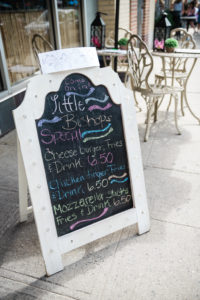 Come
on in
Little
Bishops
Special
Cheese burger, Fries
& Drink 6.50
Chicken finger Fries
& Drink 6.50
Mozzarella Sticks
Fries & Drink 6.50